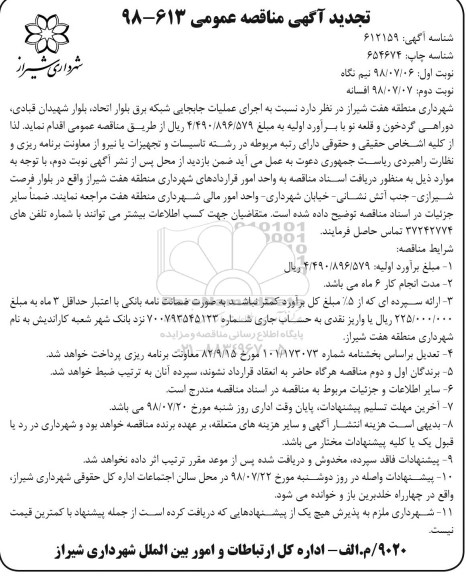 تجدید آگهی مناقصه عمومی ۶۱۳-۹۸
شهرداری شیراز
شناسه آگهی: ۶۱۲۱۵۹
شناسه چاپ: ۶۵۴۶۷۴
نوبت اول: ۹۸/۰۷/۰۶ نیم نگاه
نوبت دوم: ۹۸/۰۷/۰۷ افسانه
شهرداری منطقه هفت شیراز در نظر دارد نسبت به اجرای عملیات جابجایی شبکه برق بلوار اتحاد، بلوار شهیدان قبادی،
دوراهی گردخون و قلعه نو با برآورد اولیه به مبلغ ۴/۴۹۰/۸۹۶/۵۷۹ ریال از طریق مناقصه عمومی اقدام نماید. لذا
از کلیه اشخاص حقیقی و حقوقی دارای رتبه مربوطه در رشته تاسیسات و تجهیزات یا نیرو از معاونت برنامه ریزی و
نظارت راهبردی ریاست جمهوری دعوت به عمل می آید ضمن بازدید از محل پس از نشر آگهی نوبت دوم، با توجه به
موارد ذیل به منظور دریافت اسناد مناقصه به واحد امور قراردادهای شهرداری منطقه هفت شیراز واقع در بلوار فرصت
شیرازی- جنب آتش نشانی- خیابان شهرداری- واحد امور مالی شهرداری منطقه هفت مراجعه نمایند. ضمناً سایر
جزئیات در اسناد مناقصه توضیح داده شده است. متقاضیان جهت کسب اطلاعات بیشتر می توانند با شماره تلفن های
۳۷۲۴۲۷۷۴ تماس حاصل فرمایند.
شرایط مناقصه:
۱- مبلغ برآورد اولیه: ۴/۴۹۰/۸۹۶/۵۷۹ ریال
۲- مدت انجام کار ۶ ماه می باشد.
۳- ارائه سپرده ای که از ۵٪ مبلغ کل برآورد کمتر نباشد به صورت ضمانت نامه بانکی با اعتبار حداقل ۳ ماه به مبلغ
۲۲۵/۰۰۰/۰۰۰ ریال یا واریز نقدی به حساب جاری شماره ۷۰۰۷۹۳۵۴۵۱۲۳ نزد بانک شهر شعبه کاراندیش به نام
شهرداری منطقه هفت شیراز.
۴- تعدیل براساس بخشنامه شماره ۱۰۱/۱۷۳۰۷۳ مورخ ۸۲/۹/۱۵ معاونت برنامه ریزی پرداخت خواهد شد.
۵- برندگان اول و دوم مناقصه هرگاه حاضر به انعقاد قرارداد نشوند، سپرده آنان به ترتیب ضبط خواهد شد.
۶- سایر اطلاعات و جزئیات مربوط به مناقصه در اسناد مناقصه مندرج است.
۷- آخرین مهلت تسلیم پیشنهادات، پایان وقت اداری روز شنبه مورخ ۹۸/۰۷/۲۰ می باشد.
۸- بدیهی است هزینه انتشار آگهی و سایر هزینه های متعلقه، بر عهده برنده مناقصه خواهد بود و شهرداری در رد یا
قبول یک یا کلیه پیشنهادات مختار می باشد.
۹- پیشنهادات فاقد سپرده، مخدوش و دریافت شده پس از موعد مقرر ترتیب اثر داده نخواهد شد.
۱۰- پیشنهادات واصله در روز دوشنبه مورخ ۹۸/۰۷/۲۲ در محل سالن اجتماعات اداره کل حقوقی شهرداری شیراز،
واقع در چهارراه خلدبرین باز و خوانده می شود.
۱۱- شهرداری ملزم به پذیرش هیچ یک از پیشنهادهایی که دریافت کرده است از جمله پیشنهاد با کمترین قیمت
نیست.
۹۰۲۰/م.الف- اداره کل ارتباطات و امور بین الملل شهرداری شیراز